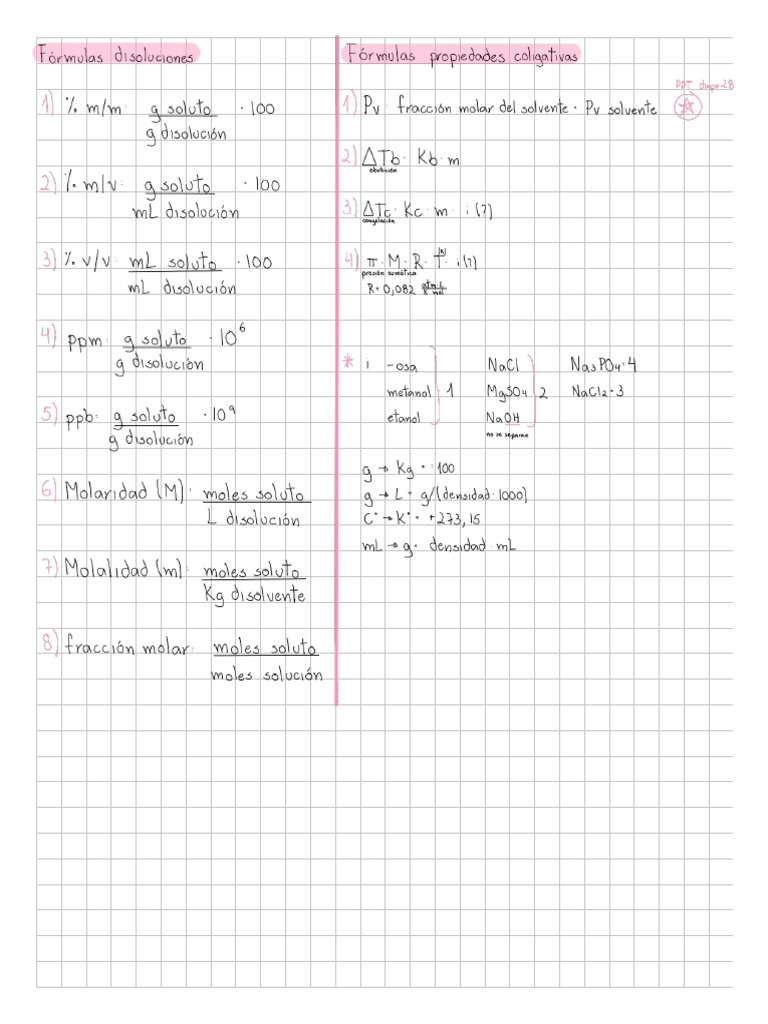 Fórmulas disoluciones
1) % m/m: g soluto · 100
g disolución
2) % m/v: g soluto · 100
mL disolución
3) % v/v: mL soluto · 100
mL disolución
4) ppm: g soluto · 10⁶
g disolución
5) ppb: g soluto · 10⁹
g disolución
6) Molaridad (M): moles soluto
L disolución
7) Molalidad (m): moles soluto
Kg disolvente
8) fracción molar: moles soluto
moles solución
Fórmulas propiedades coligativas
PPT diapo 28
1) Pv: fracción molar del solvente · Pv solvente
2) ΔTb: Kb · m
ebullición
3) ΔTc: Kc · m · i (?)
congelación
4) π: M · R · T · i (?)
(K)
presión osmótica
R= 0,082 atm·L
mol
* i -osa NaCl Na₃PO₄: 4
metanol 1 MgSO₄ 2 NaCl₂: 3
etanol NaOH
no se separan
g → Kg = :100
g → L = g/(densidad·1000)
C° → K° = +273,15
mL → g = densidad · mL